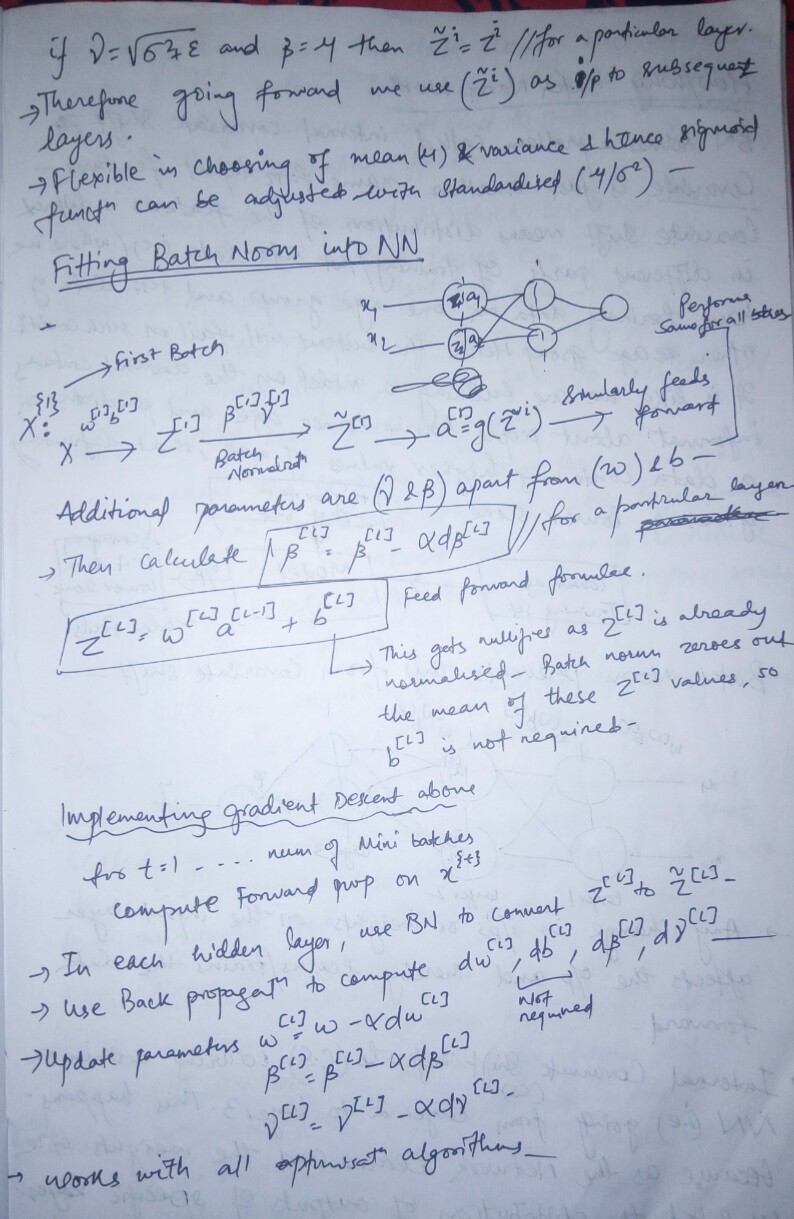 if γ = √σ²+ε and β = μ then z̃ⁱ = zⁱ // for a particular layer.
→ Therefore going forward we use (z̃ⁱ) as i/p to subsequent
layers.
→ Flexible in choosing of mean (μ) & variance & hence sigmoid
functⁿ can be adjusted with standardised (μ/σ²) —
Fitting Batch Norm into NN
x₁ z₁ a₁
x₂ z₂ a₂
Performs
same for all
→ First Batch
X^{1}:
X → w^[1] b^[1] Z^[1] → β^[1] γ^[1] Batch Normalisatⁿ Z̃^[1] → a^[1] = g(z̃ⁱ) Similarly feeds → forward
Additional parameters are (γ & β) apart from (w) & b —
→ Then calculate β^[L] = β^[L] - αdβ^[L] // for a particular layer
Z^[L] = w^[L] a^[L-1] + b^[L] Feed forward formulae.
→ This gets nullifies as Z^[L] is already
normalised - Batch norm zeroes out
the mean of these Z^[L] values, so
b^[L] is not required -
Implementing gradient Descent above
for t=1 - .... num of Mini batches
compute Forward prop on x^{t}
→ In each hidden layer, use BN to convert Z^[L] to Z̃^[L] -
→ Use Back propagatⁿ to compute dw^[L], db^[L], dβ^[L], dγ^[L]
Not
required
→ Update parameters w^[L] = w - αdw^[L]
β^[L] = β^[L] - αdβ^[L]
γ^[L] = γ^[L] - αdγ^[L] -
→ works with all optimisatⁿ algorithms —